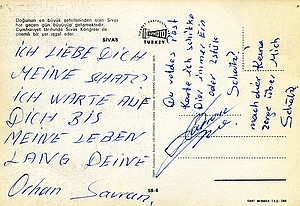 Doğunun en büyük şehirlerinden olan Sivas
her geçen gün büyüyüp gelişmektedir.
Cumhuriyet tarihinde Sivas Kongresi de
önemli bir yer işgal eder.
SİVAS
ICH LIEBE DICH
MEINE SCHATZ?
ICH WARTE AUF
DICH BIS
MEINE LEBEN
LANG DEINE
Orhan
TURKEY
58-6
Du wolles Post
Karte ich schike
Dir immer Ein
oder 2stük
Schatz?
mach dier keine
zorge über Mich
Schatz